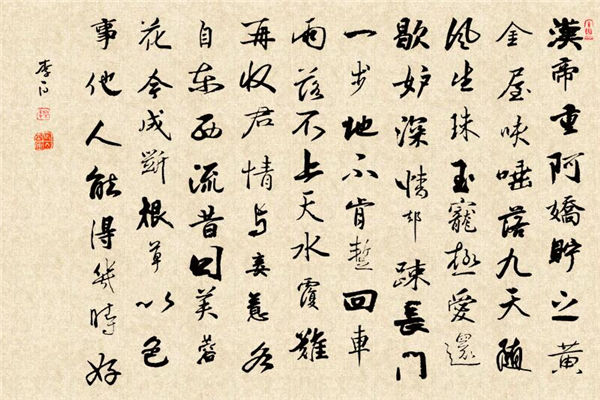 漢帝重阿嬌貯之黃
金屋咳唾落九天隨
風生珠玉寵極愛還
歇妒深情却疎長門
一步地不肯暫回車
雨落不上天水覆難
再收君情与妾意各
自東西流昔日芙蓉
花今成斷根草以色
事他人能得幾時好
李白